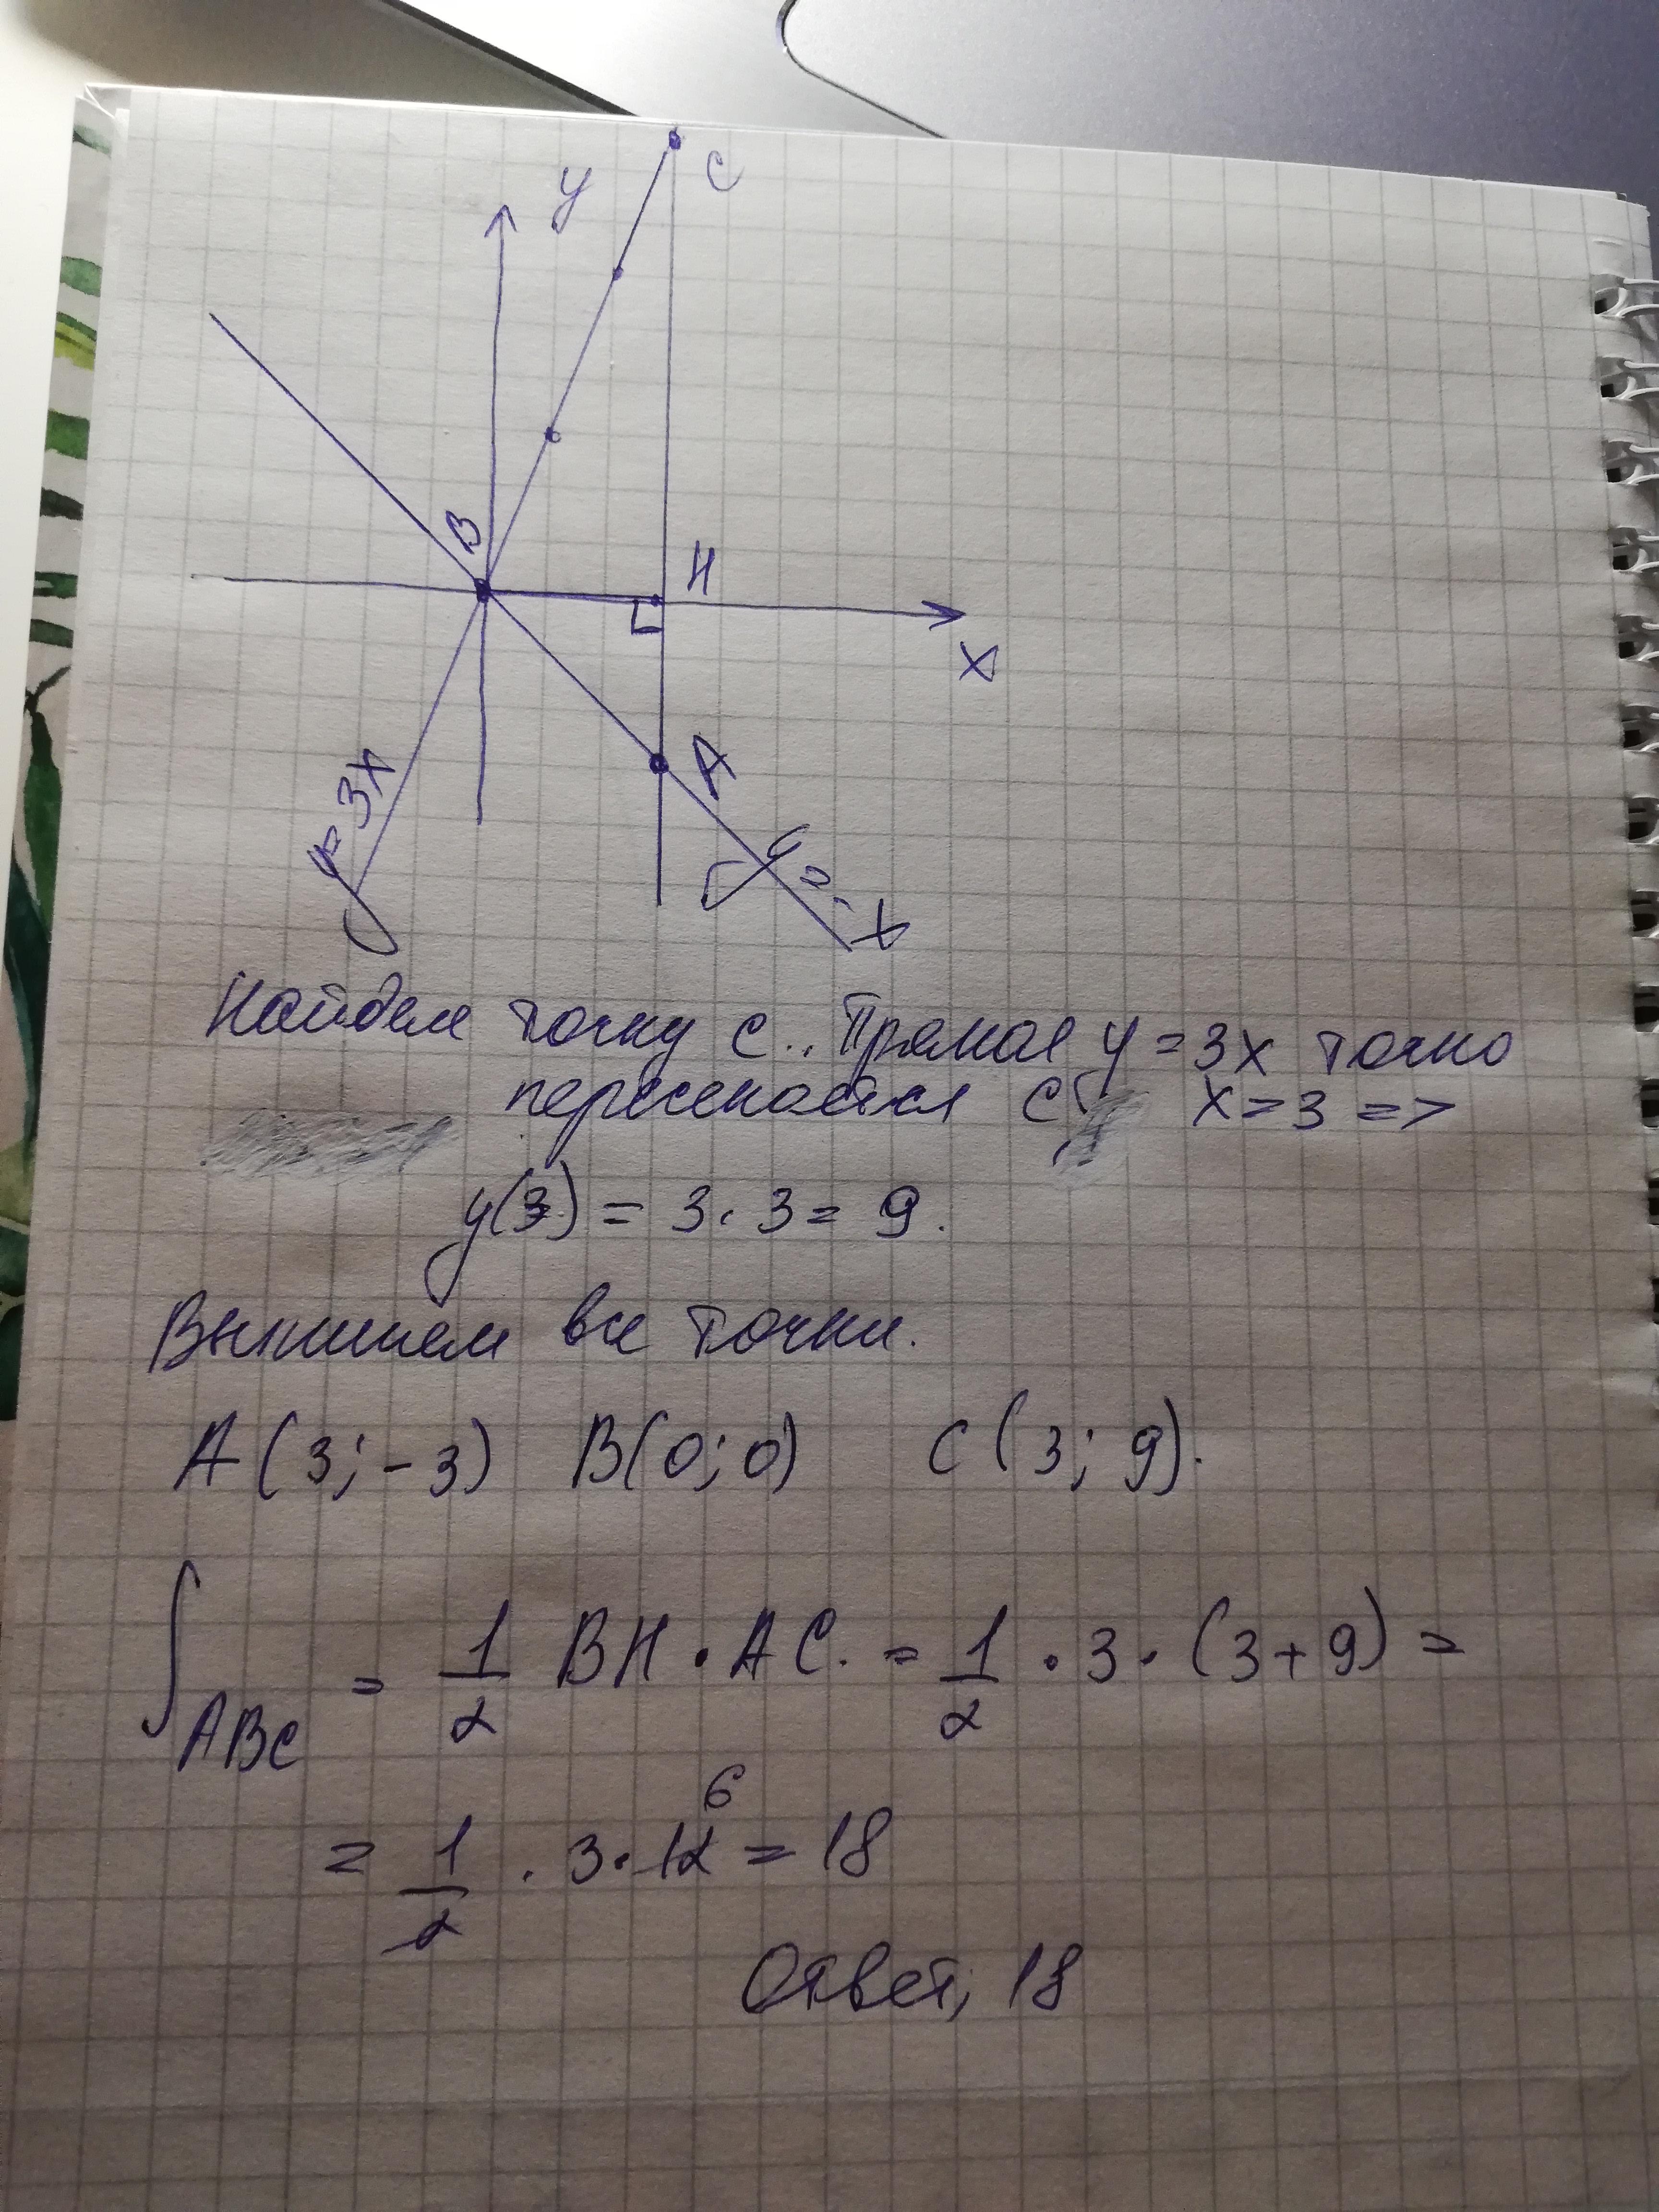 y
C
B
H
x
A
y=3x
y=-x
Найдем точку C. Прямая y=3x точно
пересекается с x=3 =>
y(3) = 3·3 = 9.
Выпишем все точки.
A(3;-3) B(0;0) C(3;9).
S ABC = 1/2 BH·AC. = 1/2 · 3 · (3+9) =
= 1/2 · 3 · 12 6 = 18
Ответ, 18